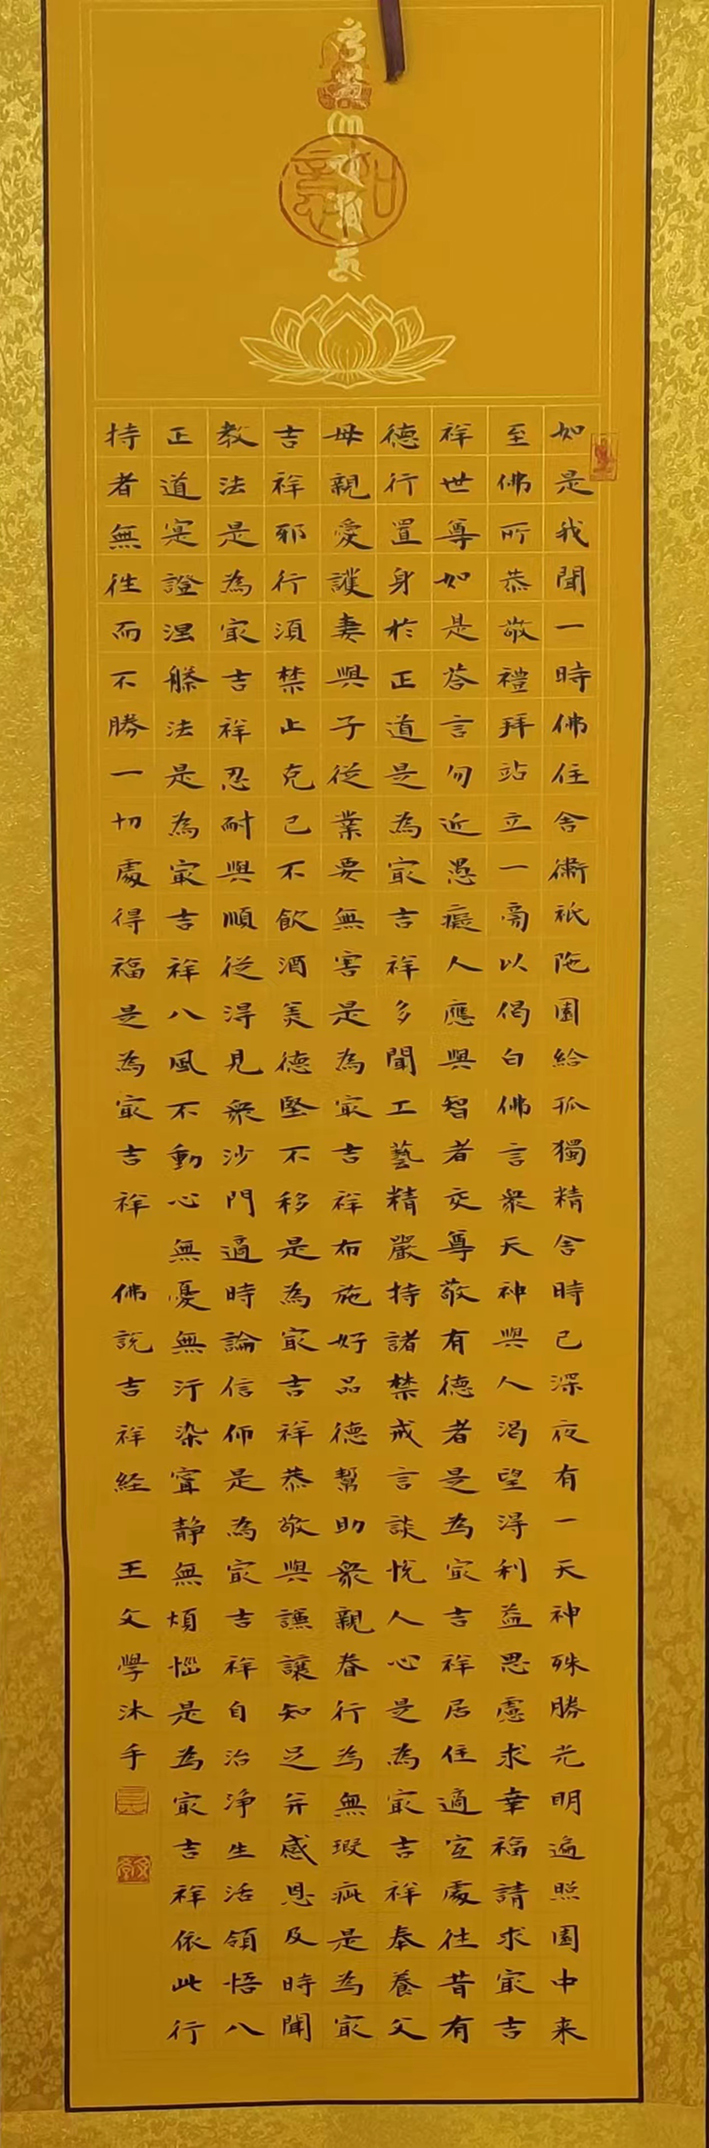 如是我聞一時佛住舍衛祇陁園給孤獨精舍時已深夜有一天神殊勝光明遍照園中来
至佛所恭敬禮拜站立一旁以偈白佛言衆天神與人渴望淂利益思慮求幸福請求冣吉
祥世尊如是荅言勿近愚癡人應與智者交尊敬有德者是為冣吉祥居住適宜處往昔有
德行置身於正道是為冣吉祥多聞工藝精嚴持諸禁戒言談悅人心是為冣吉祥奉養父
母親愛護妻與子從業要無害是為冣吉祥布施好品德幫助衆親眷行為無瑕疵是為冣
吉祥邪行須禁止克己不飲酒美德堅不移是為冣吉祥恭敬與謙讓知足并感恩及時聞
教法是為冣吉祥忍耐與順從淂見衆沙門適時論信仰是為冣吉祥自治淨生活領悟八
正道寔證涅槃法是為冣吉祥八風不動心無憂無汙染寧静無煩惱是為冣吉祥依此行
持者無往而不勝一切處得福是為冣吉祥 佛說吉祥経 王文學沐手